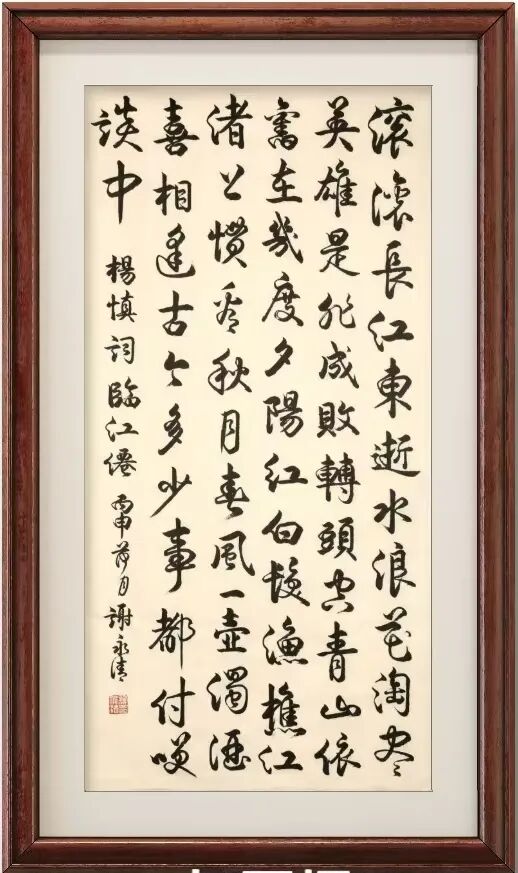 滚滚長江東逝水浪花淘尽
英雄是非成敗轉頭空青山依
舊在幾度夕陽紅白髮漁樵江
渚上慣看秋月春風一壺濁酒
喜相逢古今多少事都付咲
談中
楊慎詞臨江僊 丙申月 謝永清